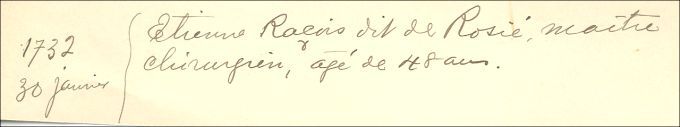 1732
30 janvier
Etienne Raçois dit de Rosié, maître
chirurgien, âgé de 48 ans.